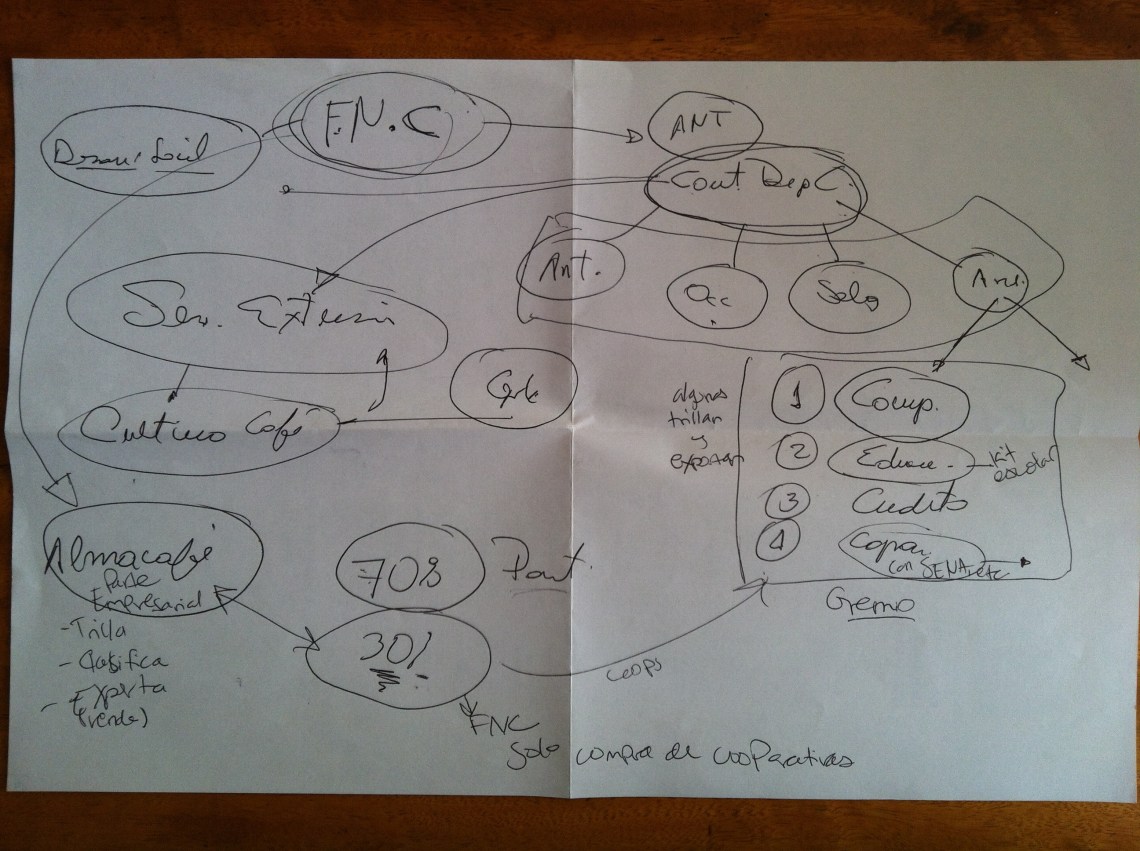 F.N.C
ANT
Social
Comt Dep C.
Ant.
Occ
Ser. Extensión
Cultivo Café
algunas
trillan
y
exportan
1 Comp.
2 Educac. - kit
escolar
3 Credito
4 Capac.
con SENA, etc
Gremio
Almacafé
Parte
Empresarial
- Trilla
- Clasifica
- Exporta
(vende)
70%
30%
Coops
FNC
Solo compra de cooperativas